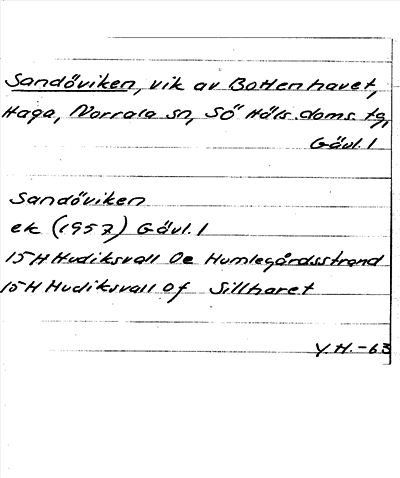 Sandöviken, vik av Bottenhavet,
Haga, Norrala sn, Sö Häls. doms. tg,
Gävl. l
Sandöviken
ek (1957) Gävl. l
15H Hudiksvall 0e Humlegårdsstrand
15H Hudiksvall 0f Sillharet
Y.H.-63